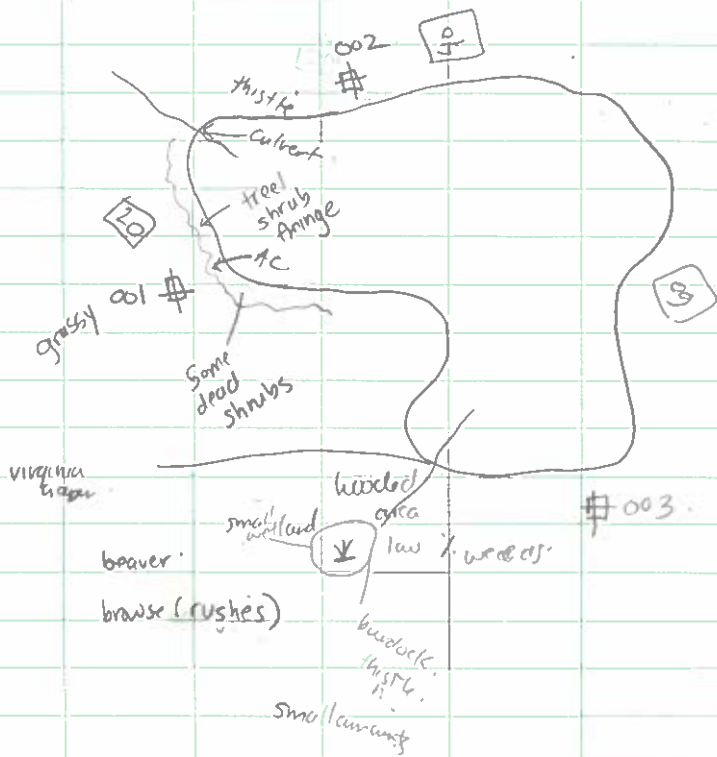 002
thistle
culvert
tree/
shrub
fringe
20
AC
001
grassy
Some
dead
shrubs
virginia
wooded
area
003
small
wetland
low % weeds.
beaver.
browse (rushes)
burdock.
thistle
small amounts